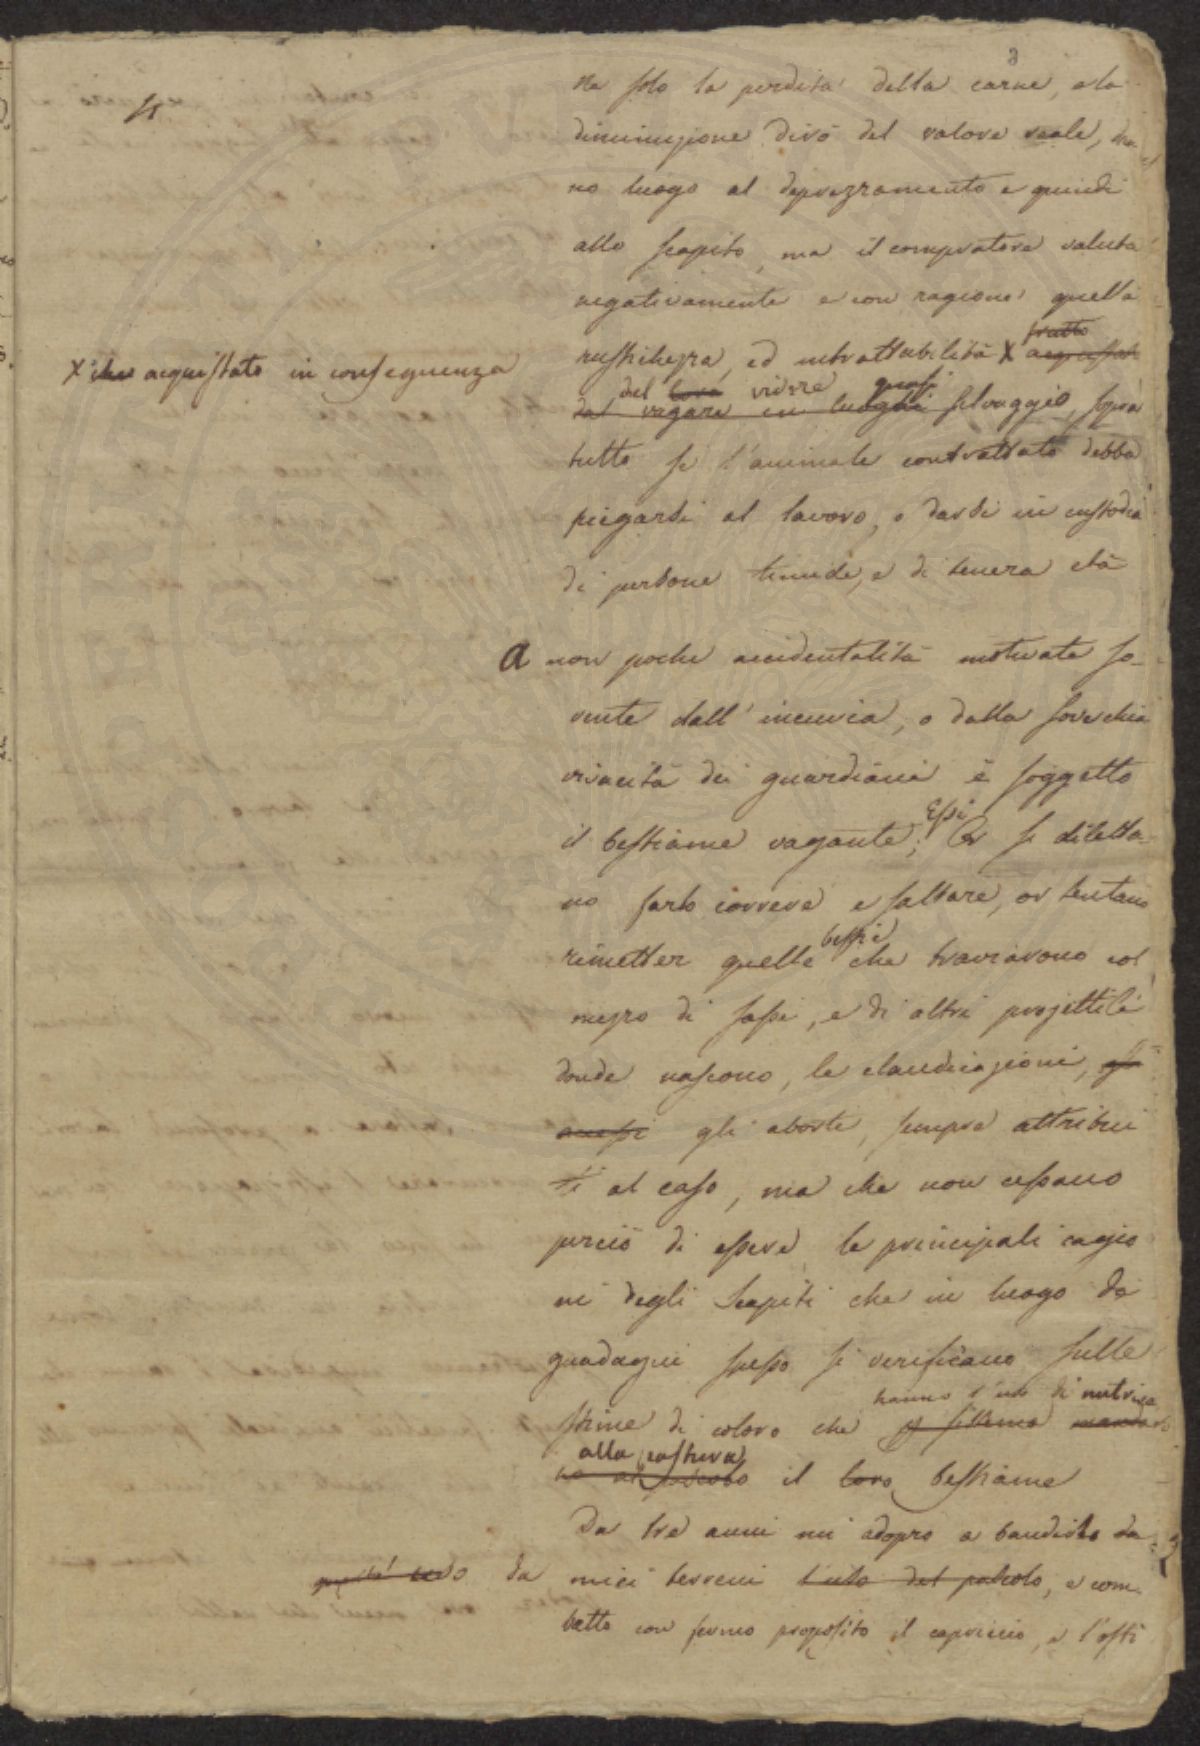 Ne solo la perdita della carne, e la
diminuzione dirò del valore reale, dan
no luogo al deprezzamento e quindi
allo scapito, ma il compratore valuta
negativamente e con ragione quella
rustichezza, ed intrattabilità X tratto
X che acquistata in conseguenza
del loro vivere quasi
da vagare in luoghi selvaggio, sopra
tutto se l'animale contrattato debba
piegarsi al lavoro, o darsi in custodia
di persone timide, e di tenera età
A non poche accidentalità motivate so-
vente dall'incuria, o dalla soverchia
vivacità dei guardiani è soggetto
il bestiame vagante; Essi Or si diletta-
no farlo correre e saltare, or tentano
rimetter quelle bestie che traviarono col
mezzo di sassi, e di altri projettili
donde nascono, le claudicazioni,
gli aborti, sempre attribui
ti al caso, ma che non cessano
perciò di essere le principali cagio
ni degli Scapiti che in luogo di
guadagni spesso si verificano sulle
hanno l'uso di nutrica
stime di coloro che
alla pastura
il loro bestiame
Da tre anni mi adopro a bandirlo da
da miei terreni l'uso del pascolo, e com
batto con fermo proposito il capriccio, e l'osti